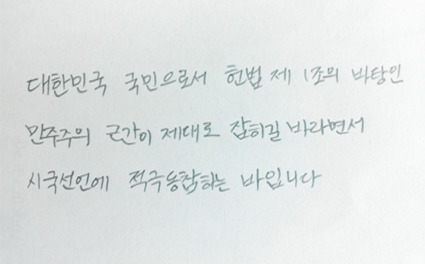 대한민국 국민으로서 헌법 제 1조의 바탕인
민주주의 근간이 제대로 잡히길 바라면서
시국선언에 적극동참하는 바입니다